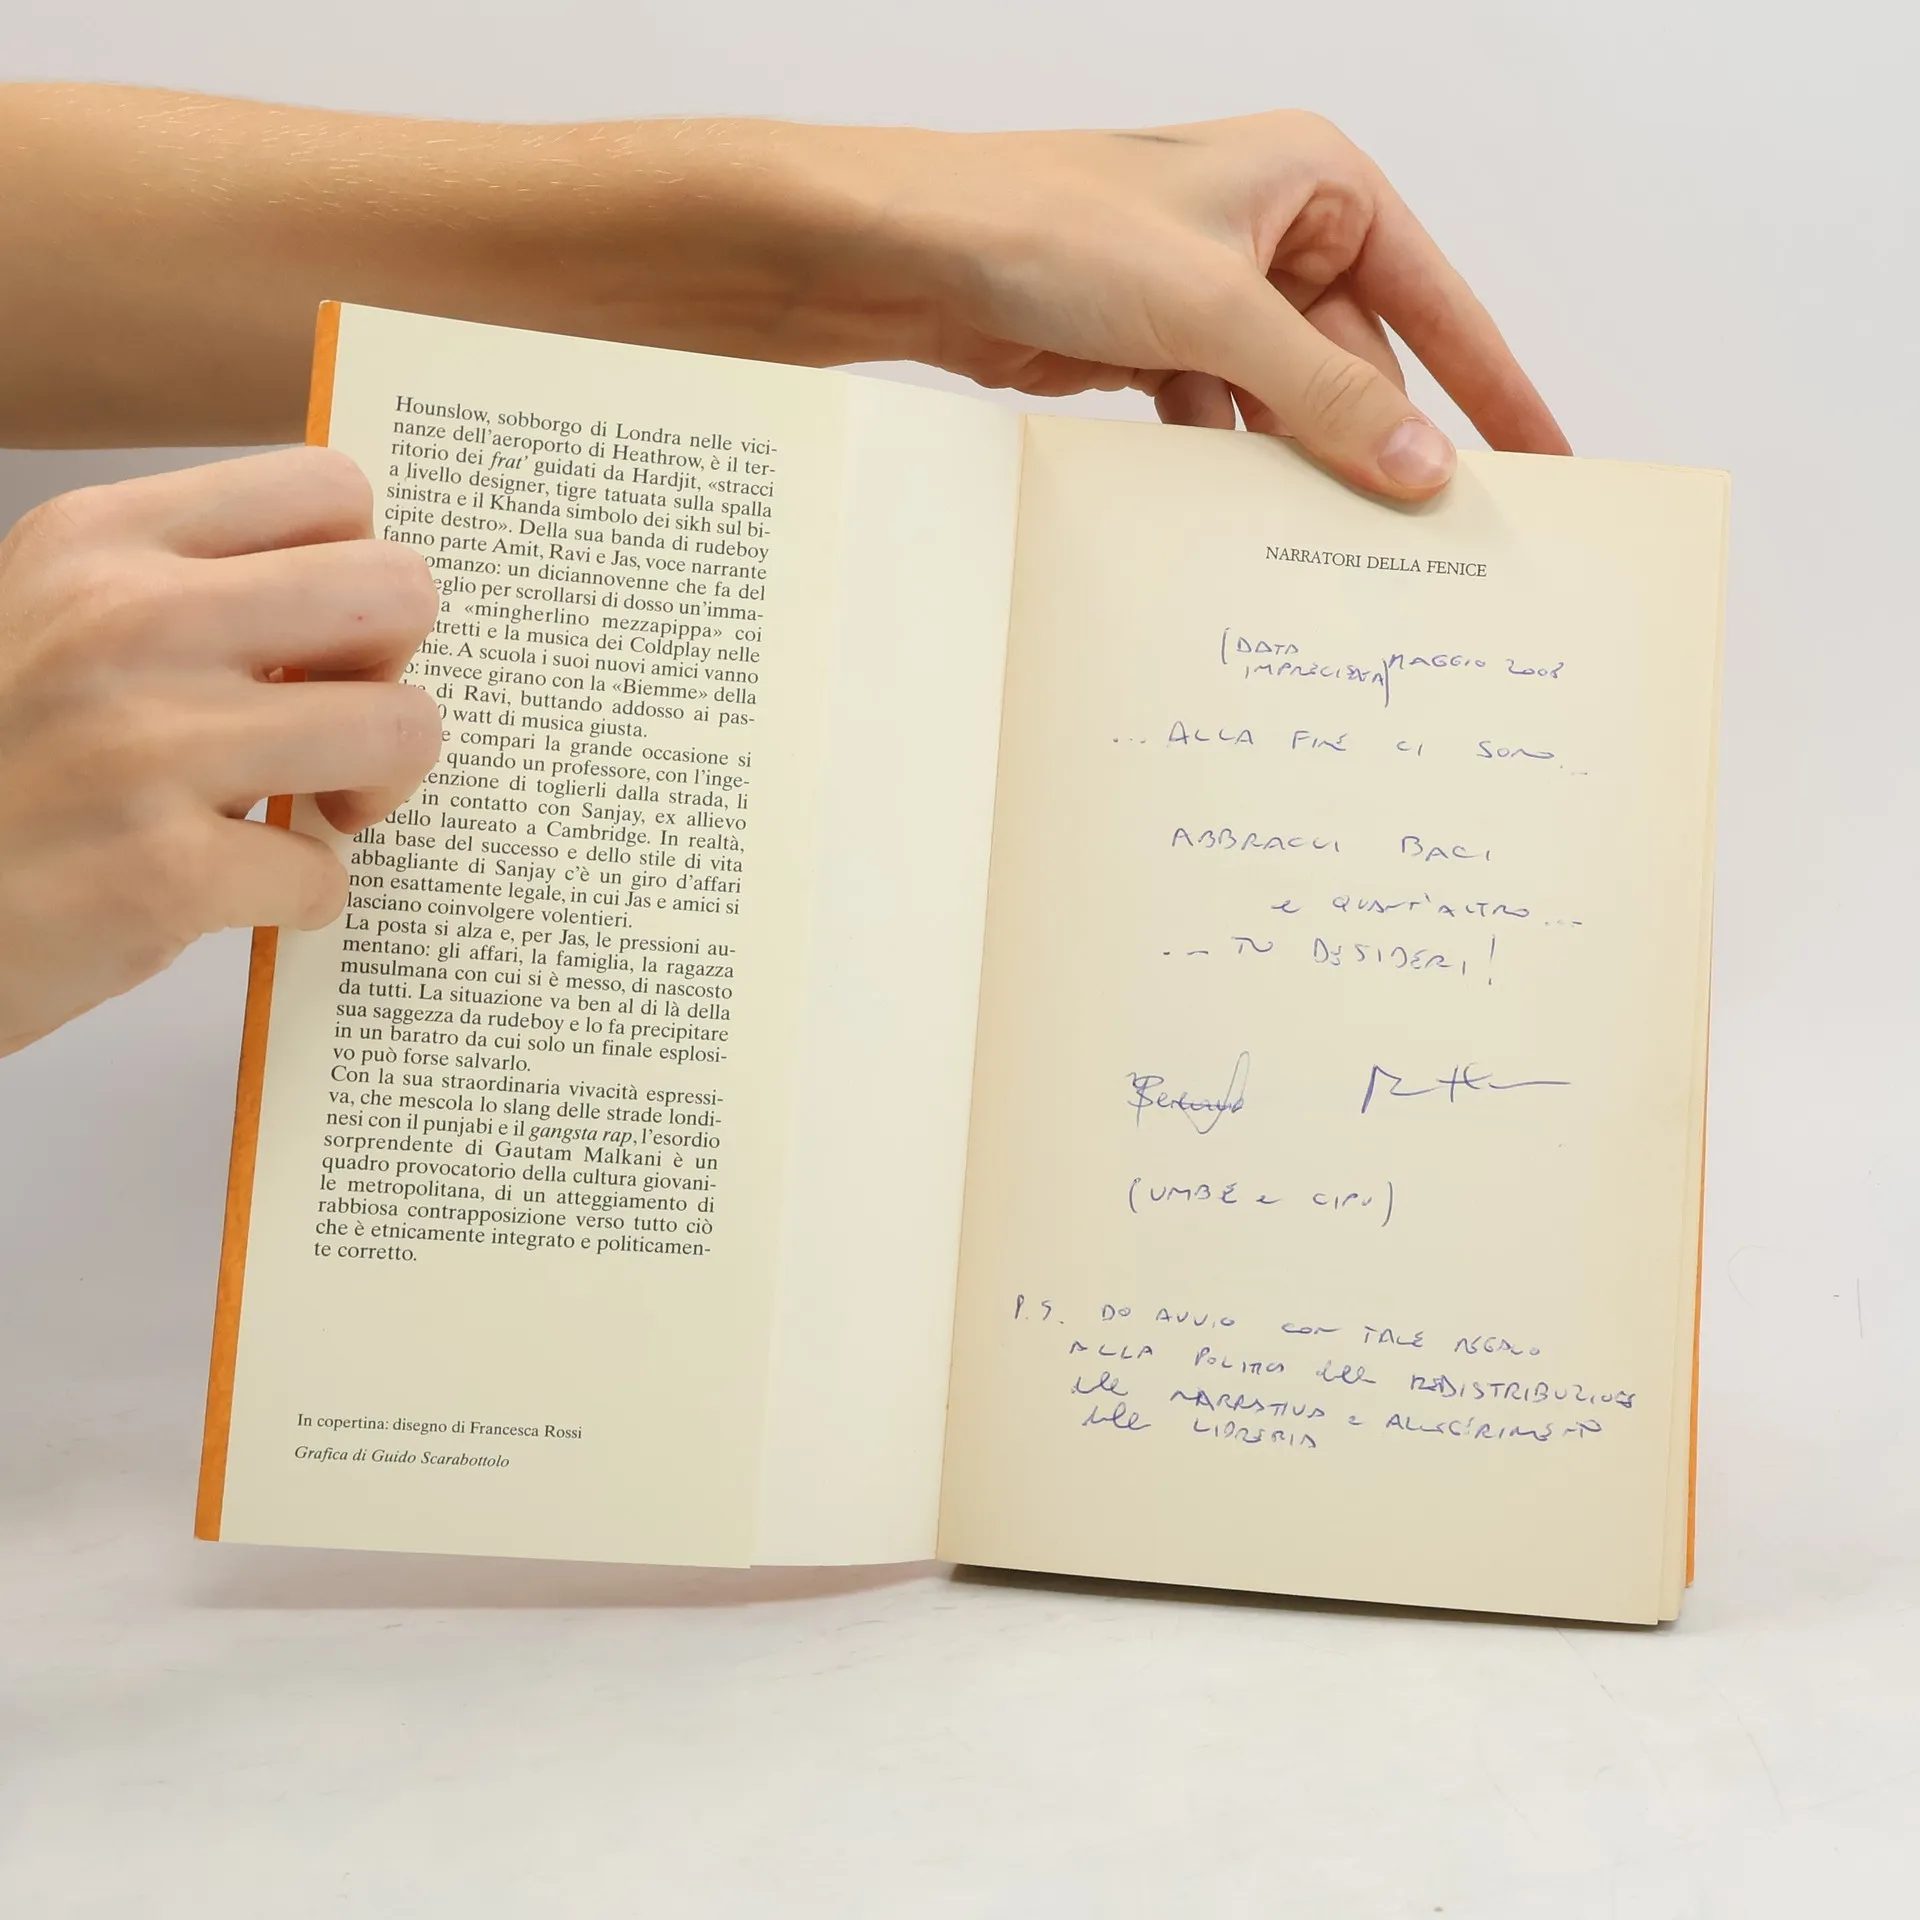 Hounslow, sobborgo di Londra nelle vici-
nanze dell'aeroporto di Heathrow, è il ter-
ritorio dei frat' guidati da Hardjit, «stracci
a livello designer, tigre tatuata sulla spalla
sinistra e il Khanda simbolo dei sikh sul bi-
cipite destro». Della sua banda di rudeboy
fanno parte Amit, Ravi e Jas, voce narrante
omanzo: un diciannovenne che fa del
eglio per scrollarsi di dosso un'imma-
a «mingherlino mezzapippa» coi
stretti e la musica dei Coldplay nelle
chie. A scuola i suoi nuovi amici vanno
o: invece girano con la «Biemme» della
di Ravi, buttando addosso ai pas-
0 watt di musica giusta.
e compari la grande occasione si
quando un professore, con l'inge-
tenzione di toglierli dalla strada, li
in contatto con Sanjay, ex allievo
dello laureato a Cambridge. In realtà,
alla base del successo e dello stile di vita
abbagliante di Sanjay c'è un giro d'affari
non esattamente legale, in cui Jas e amici si
lasciano coinvolgere volentieri.
La posta si alza e, per Jas, le pressioni au-
mentano: gli affari, la famiglia, la ragazza
musulmana con cui si è messo, di nascosto
da tutti. La situazione va ben al di là della
sua saggezza da rudeboy e lo fa precipitare
in un baratro da cui solo un finale esplosi-
vo può forse salvarlo.
Con la sua straordinaria vivacità espressi-
va, che mescola lo slang delle strade londi-
nesi con il punjabi e il gangsta rap, l'esordio
sorprendente di Gautam Malkani è un
quadro provocatorio della cultura giovani-
le metropolitana, di un atteggiamento di
rabbiosa contrapposizione verso tutto ciò
che è etnicamente integrato e politicamen-
te corretto.
In copertina: disegno di Francesca Rossi
Grafica di Guido Scarabottolo
NARRATORI DELLA FENICE
(DATA
IMPRECISATA) MAGGIO 2008
... ALLA FINE CI SONO...
ABBRACCI BACI
e QUANT'ALTRO...
... TU DESIDERI!
(UMBE e CIPU)
P.S. DO AVVIO CON TALE REGALO
ALLA POLITICA della REDISTRIBUZIONE
della NARRATIVA e ALLEGGERIMENTO
della LIBRERIA